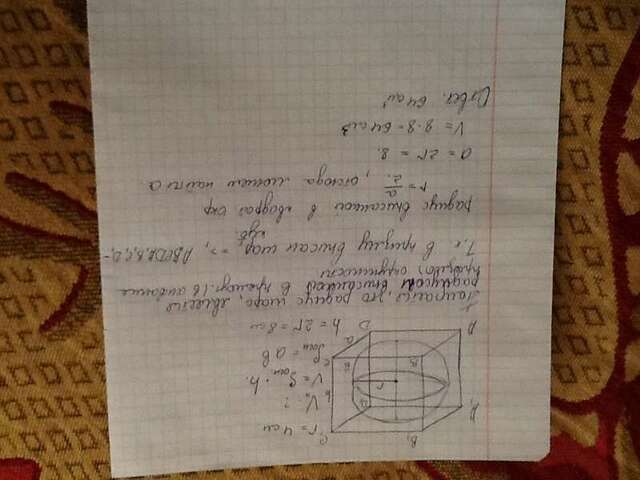 B₁ C₁ r = 4 см
A₁ D₁
V - ?
r h V = Sосн · h.
B C Sосн = a b
A D a h = 2r = 8 см
радиус шара, является
радиусом вписанной в прямоуг. (в основание
призмы) окружности.
Т.к. в призму вписан шар, =>, ABCDA₁B₁C₁D₁ -
куб.
радиус вписанной в квадрат окр.
r = a/2. , отсюда можем найти a
a = 2r = 8.
V = 8·8 = 64 см³
Ответ. 64 см³